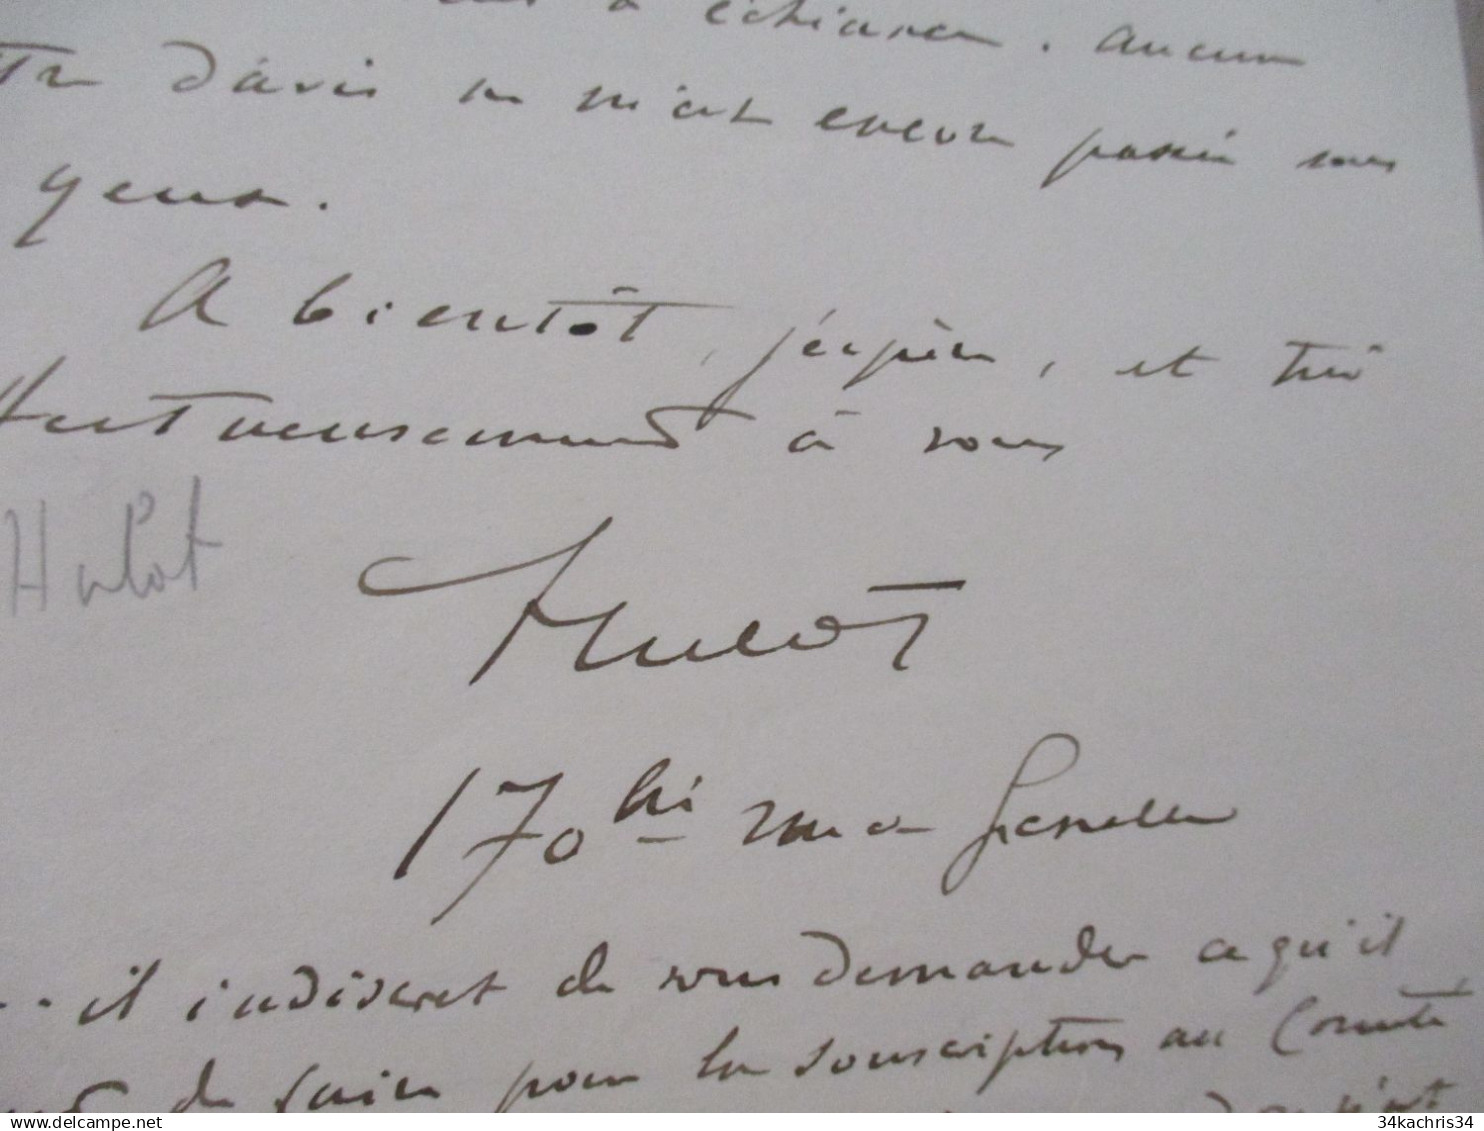 à échiance. aucun
d'avis ne m'est encore passé sous
yeux.
A bientôt, j'espère, et très
affectueusement à vous
Hulot
Hulot
170 bis rue de Grenelle
-il indiscret de vous demander ce qu'il
de faire pour la souscription au Comité
n'est
delcampe.net
34kachris34